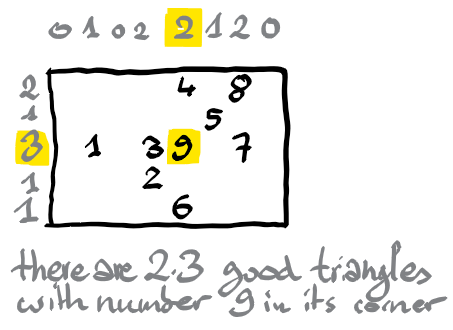 0 1 0 2 2 1 2 0
2 4 8
1 5
3 1 3 9 7
1 2
1 6
there are 2.3 good triangles
with number 9 in its corner